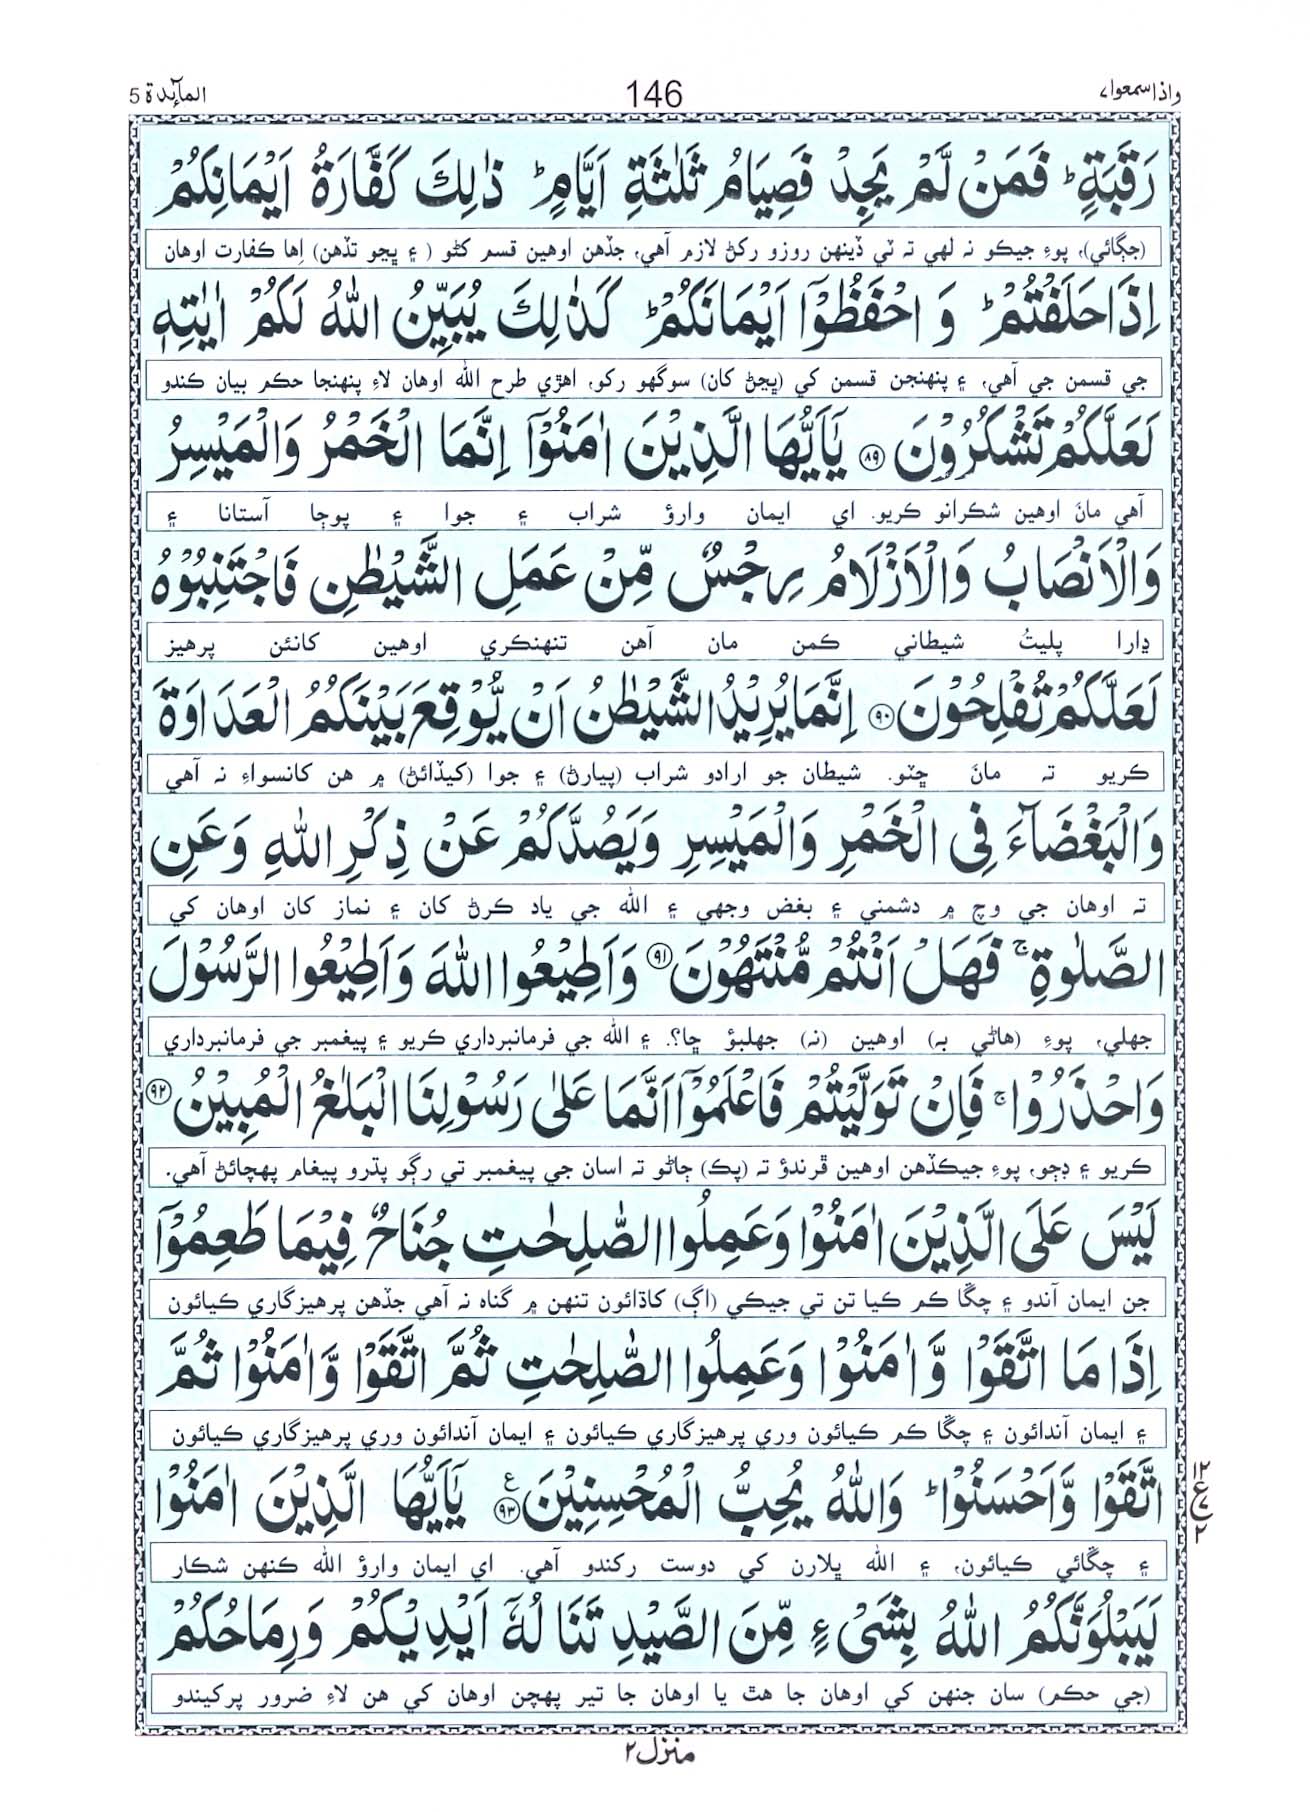 واذاسمعوا۷ 146 المآئدة 5
رَقَبَةٍ ؕ فَمَنْ لَّمْ يَجِدْ فَصِيَامُ ثَلٰثَةِ اَيَّامٍ ؕ ذٰلِكَ كَفَّارَةُ اَيْمَانِكُمْ
(جڳائي)، پوءِ جيڪو نہ لهي تہ ٽي ڏينهن روزو رکڻ لازم آهي، جڏهن اوهين قسم کڻو ( ۽ ڀڃو تڏهن) اِها ڪفارت اوهان
اِذَا حَلَفْتُمْ ؕ وَ احْفَظُوْۤا اَيْمَانَكُمْ ؕ كَذٰلِكَ يُبَيِّنُ اللّٰهُ لَكُمْ اٰيٰتِهٖ
جي قسمن جي آهي، ۽ پنهنجن قسمن کي (ڀڃڻ کان) سوگهو رکو، اهڙي طرح الله اوهان لاءِ پنهنجا حڪم بيان ڪندو
لَعَلَّكُمْ تَشْكُرُوْنَ ۸۹ يٰۤاَيُّهَا الَّذِيْنَ اٰمَنُوْۤا اِنَّمَا الْخَمْرُ وَالْمَيْسِرُ
آهي مانَ اوهين شڪرانو ڪريو. اي ايمان وارؤ شراب ۽ جوا ۽ پوڄا آستانا ۽
وَالْاَنْصَابُ وَالْاَزْلَامُ رِجْسٌ مِّنْ عَمَلِ الشَّيْطٰنِ فَاجْتَنِبُوْهُ
ڍارا پليتُ شيطاني ڪمن مان آهن تنهنڪري اوهين کانئن پرهيز
لَعَلَّكُمْ تُفْلِحُوْنَ ۹۰ اِنَّمَا يُرِيْدُ الشَّيْطٰنُ اَنْ يُّوْقِعَ بَيْنَكُمُ الْعَدَاوَةَ
ڪريو تہ مانَ ڇٽو. شيطان جو ارادو شراب (پيارڻ) ۽ جوا (کيڏائڻ) ۾ هن کانسواءِ نہ آهي
وَالْبَغْضَآءَ فِى الْخَمْرِ وَالْمَيْسِرِ وَيَصُدَّكُمْ عَنْ ذِكْرِ اللّٰهِ وَعَنِ
تہ اوهان جي وچ ۾ دشمني ۽ بغض وجهي ۽ الله جي ياد ڪرڻ کان ۽ نماز کان اوهان کي
الصَّلٰوةِ ۚ فَهَلْ اَنْتُمْ مُّنْتَهُوْنَ ۹۱ وَاَطِيْعُوا اللّٰهَ وَاَطِيْعُوا الرَّسُوْلَ
جهلي، پوءِ (هاڻي بہ) اوهين (نہ) جهلبؤ ڇا؟. ۽ الله جي فرمانبرداري ڪريو ۽ پيغمبر جي فرمانبرداري
وَاحْذَرُوْا ۚ فَاِنْ تَوَلَّيْتُمْ فَاعْلَمُوْۤا اَنَّمَا عَلٰى رَسُوْلِنَا الْبَلٰغُ الْمُبِيْنُ ۹۲
ڪريو ۽ ڊڄو، پوءِ جيڪڏهن اوهين ڦرندؤ تہ (پڪ) ڄاڻو تہ اسان جي پيغمبر تي رڳو پڌرو پيغام پهچائڻ آهي.
لَيْسَ عَلَى الَّذِيْنَ اٰمَنُوْا وَعَمِلُوا الصّٰلِحٰتِ جُنَاحٌ فِيْمَا طَعِمُوْۤا
جن ايمان آندو ۽ چڱا ڪم ڪيا تن تي جيڪي (اڳ) کاڌائون تنهن ۾ گناه نہ آهي جڏهن پرهيزگاري ڪيائون
اِذَا مَا اتَّقَوْا وَّاٰمَنُوْا وَعَمِلُوا الصّٰلِحٰتِ ثُمَّ اتَّقَوْا وَّاٰمَنُوْا ثُمَّ
۽ ايمان آندائون ۽ چڱا ڪم ڪيائون وري پرهيزگاري ڪيائون ۽ ايمان آندائون وري پرهيزگاري ڪيائون
اتَّقَوْا وَّاَحْسَنُوْا ؕ وَاللّٰهُ يُحِبُّ الْمُحْسِنِيْنَ ۹۳ ع يٰۤاَيُّهَا الَّذِيْنَ اٰمَنُوْا
۱۲ ع ۷ ۲
۽ چڱائي ڪيائون، ۽ الله ڀلارن کي دوست رکندو آهي. اي ايمان وارؤ الله ڪنهن شڪار
لَيَبْلُوَنَّكُمُ اللّٰهُ بِشَىْءٍ مِّنَ الصَّيْدِ تَنَالُهٗۤ اَيْدِيْكُمْ وَرِمَاحُكُمْ
(جي حڪم) سان جنهن کي اوهان جا هٿ يا اوهان جا تير پهچن اوهان کي هن لاءِ ضرور پرکيندو
منزل۲